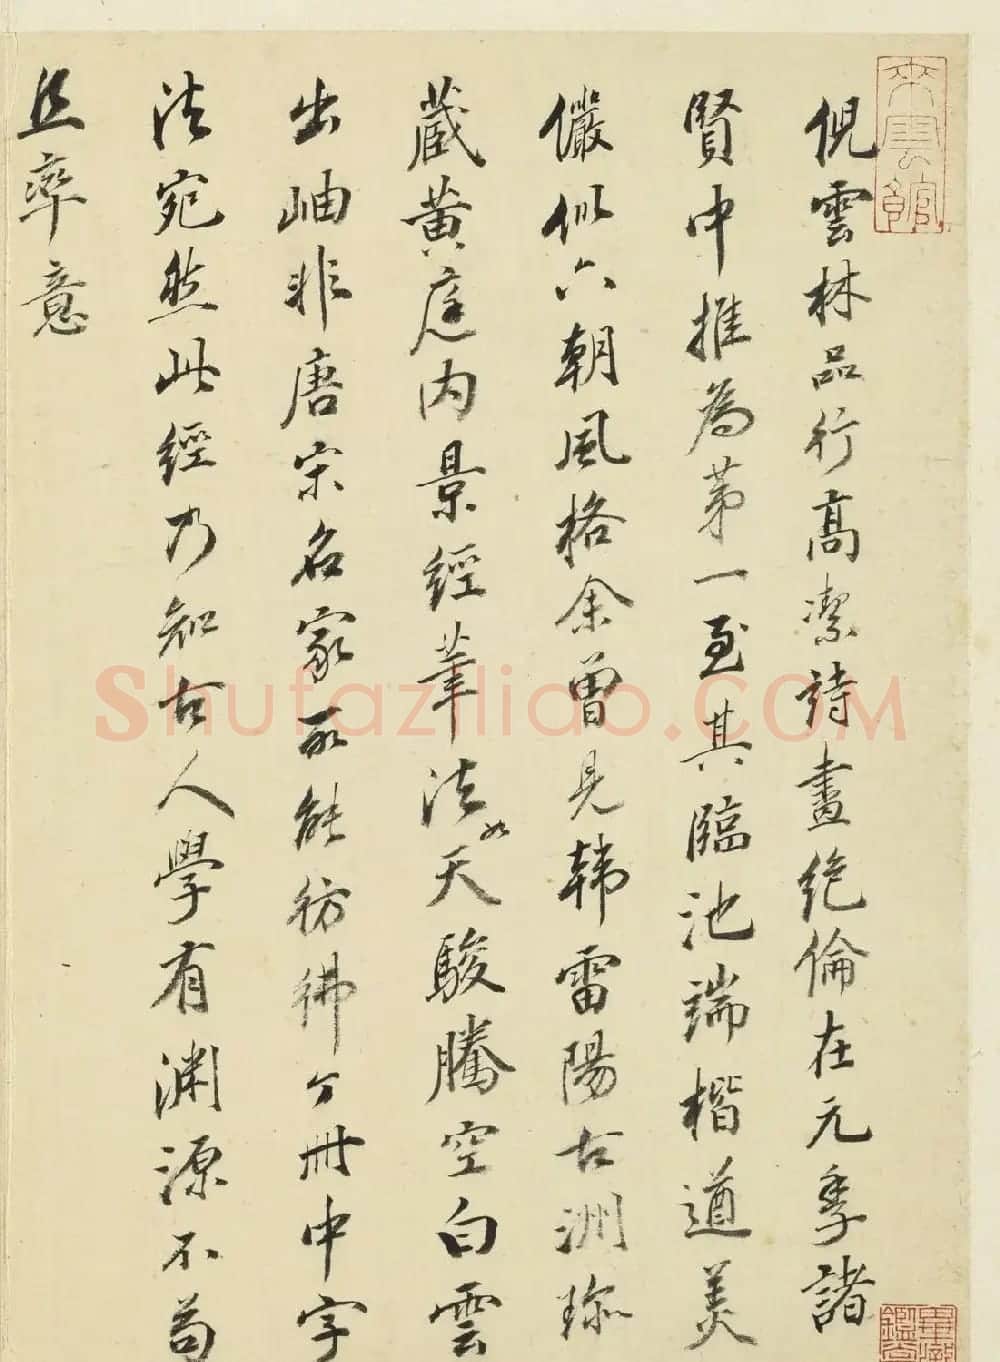 來雲館
倪雲林品行高潔詩畫絶倫在元季諸
賢中推為第一至其臨池端楷遒美
儼似六朝風格余曾見韓雷陽古洲珎
藏黄庭内景經筆法如天駿騰空白雲
出岫非唐宋名家所能彷彿今冊中字
法宛然此經乃知古人學有渊源不苟
且率意
Shufaziliao.COM